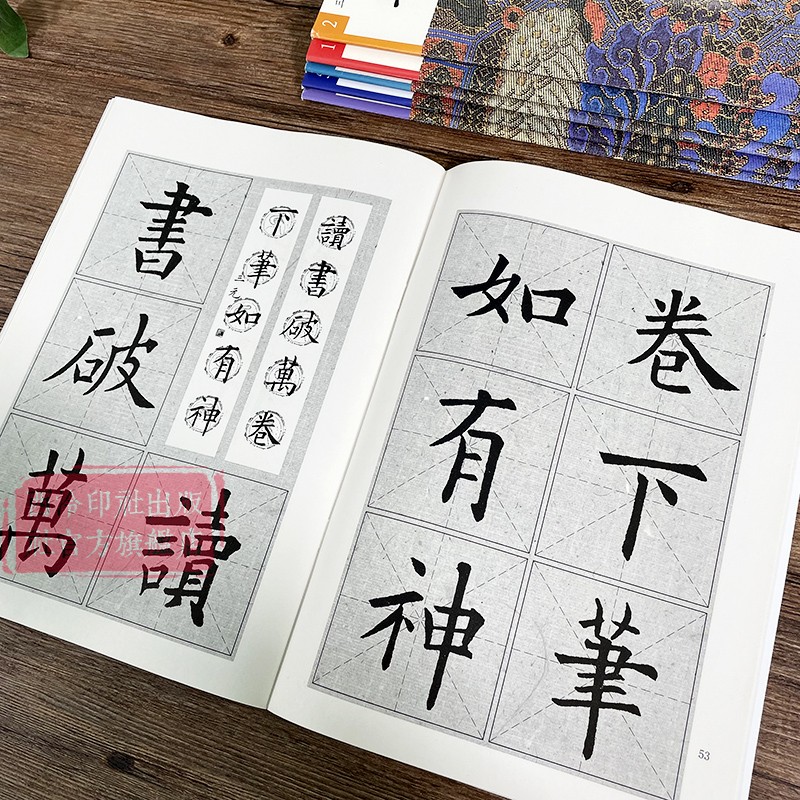 讀書破萬卷
下筆如有神
讀
書破萬
卷下筆
如有神
53
印社出版
官方旗舰
2
1